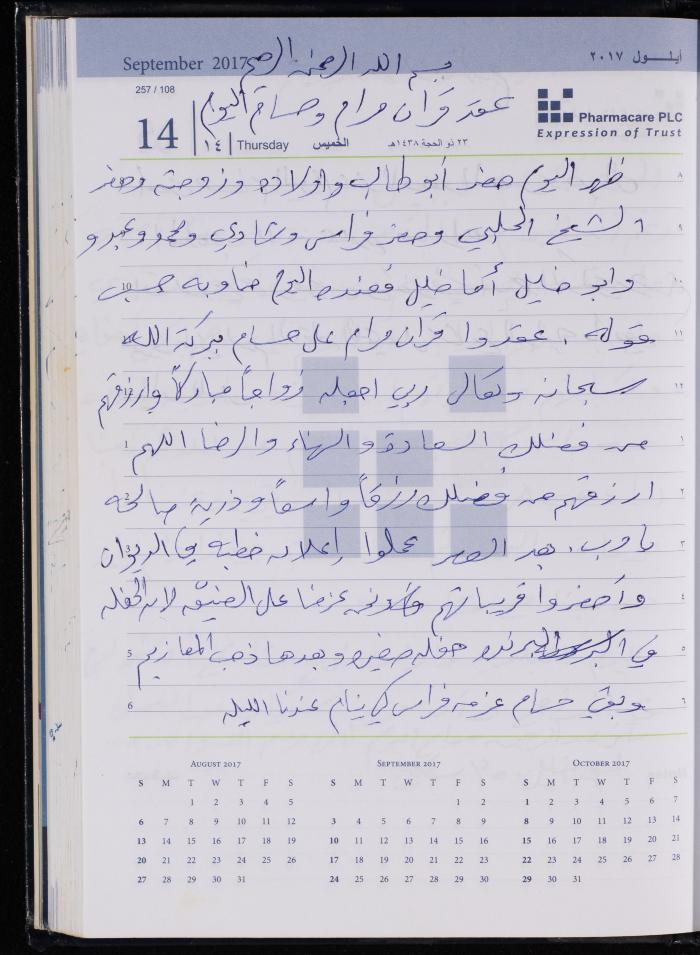 September 2017 أيلول ٢٠١٧
بسم الله الرحمن الرحيم
257 / 108
عقد قرآن مرام وحسام اليوم
Pharmacare PLC
Expression of Trust
14 ١٤ Thursday الخميس ٢٣ ذو الحجة ١٤٣٨هـ
ظهر اليوم حضر أبو طالب واولاده وزوجته وحضر
الشيخ الحلبي وحضر فراس وشادي ومحمد وعبد و
وابو خليل أما خليل فعنده اليوم مناوبه حسب
قوله . عقدوا قرآن مرام على حسام ببركة الله
سبحانه وتعالى ربي اجعله زواجاً مباركاً وارزقهم
من فضلك السعادة والهناء والرضا اللهم
ارزقهم من فضلك رزقاً واسعاً وذرية صالحه
يا رب . بعد العصر عملوا إعلان خطبه في الديوان
وأحضروا قريباتهم ونحن عزمنا على الضيق لان الحفله
في البرنده حفله صغيره وبعدها ذهب المعازيم
وبقي حسام عزمه فراس كي ينام عندنا الليله
٨
٩
١٠ 10
١١
١٢
١
٢
٣
٤
٥ 5
٦ 6
August 2017
S M T W T F S
1 2 3 4 5
6 7 8 9 10 11 12
13 14 15 16 17 18 19
20 21 22 23 24 25 26
27 28 29 30 31
September 2017
S M T W T F S
1 2
3 4 5 6 7 8 9
10 11 12 13 14 15 16
17 18 19 20 21 22 23
24 25 26 27 28 29 30
October 2017
S M T W T F S
1 2 3 4 5 6 7
8 9 10 11 12 13 14
15 16 17 18 19 20 21
22 23 24 25 26 27 28
29 30 31